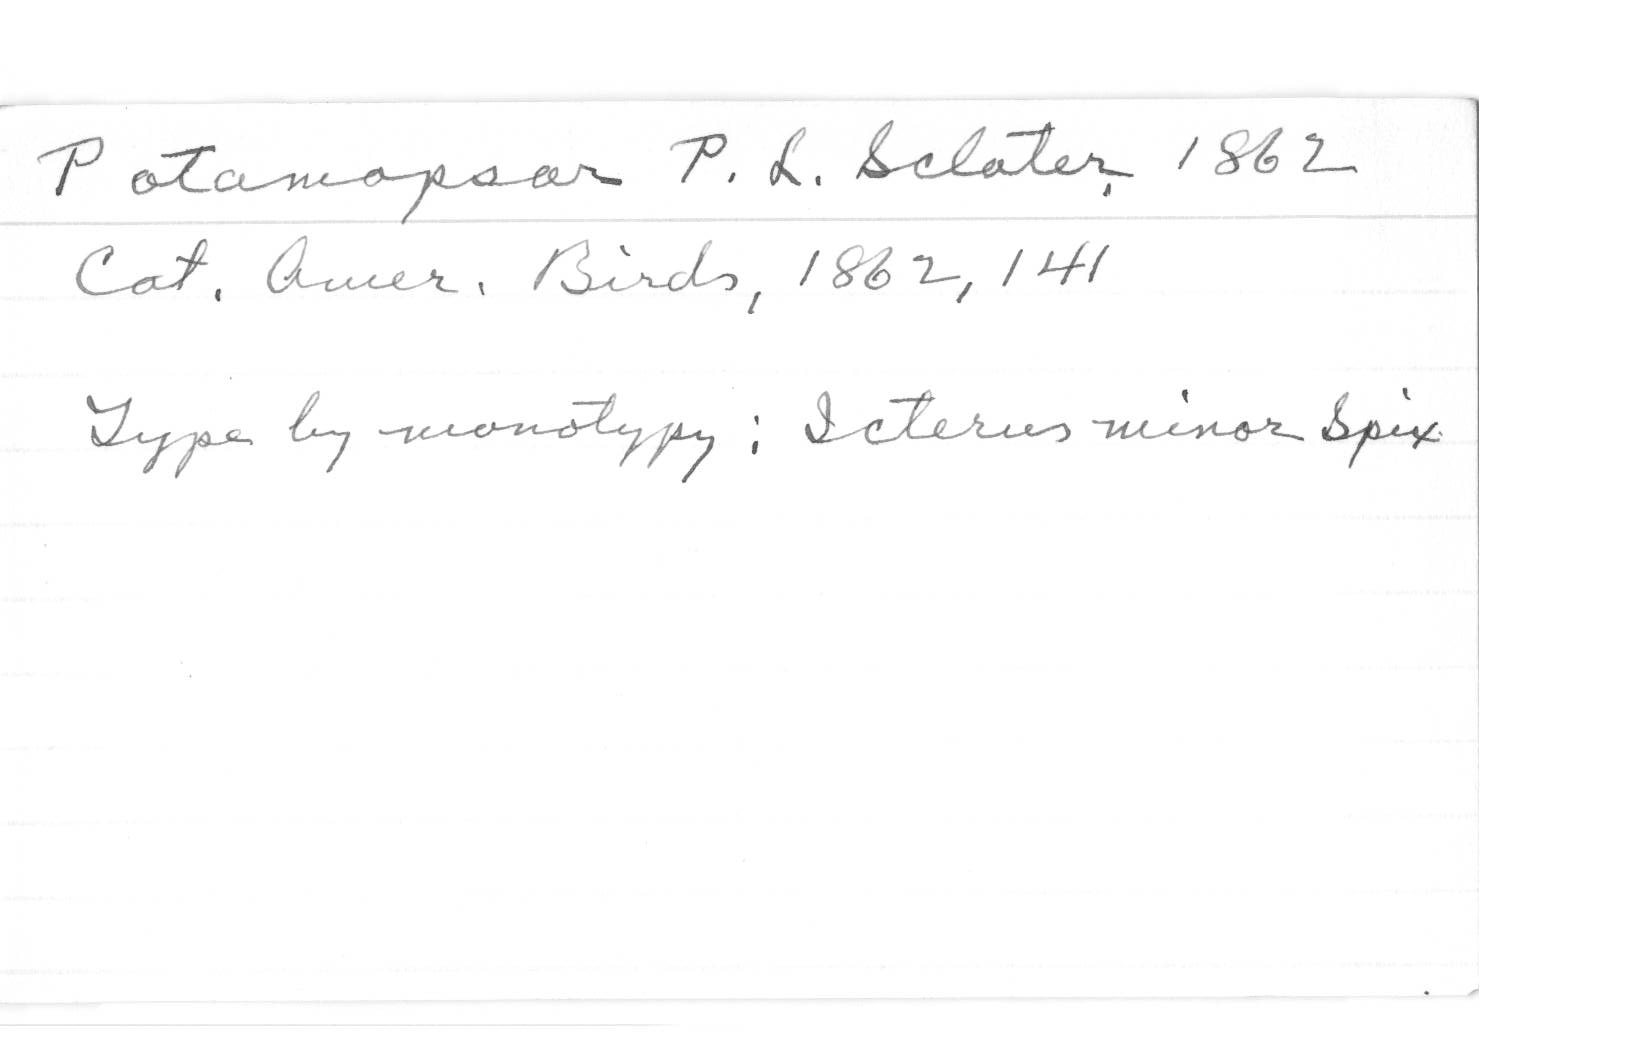 Potamopsar P. L. Sclater, 1862
Cat. Amer. Birds, 1862, 141
Type by monotypy; Icterus minor Spix